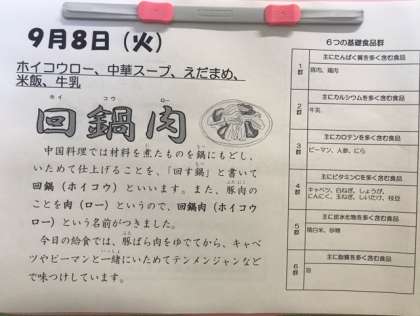 9月8日（火）
ホイコウロー、中華スープ、えだまめ、
米飯、牛乳
ホイ コウ ロー
回鍋肉
中国料理では材料を煮たものを鍋にもどし、
いためて仕上げることを、「回す鍋」と書いて
回鍋（ホイコウ）といいます。また、豚肉の
ことを肉（ロー）というので、回鍋肉（ホイコウ
ロー）という名前がつきました。
今日の給食では、豚ばら肉をゆでてから、キャベ
ツやピーマンと一緒にいためてテンメンジャンなど
で味つけしています。
6つの基礎食品群
1群
主にたんぱく質を多く含む食品
豚肉、鶏肉
2群
主にカルシウムを多く含む食品
牛乳
3群
主にカロテンを多く含む食品
ピーマン、人参、にら
4群
主にビタミンCを多く含む食品
キャベツ、白ねぎ、しょうが、
にんにく、玉ねぎ、しいたけ、枝豆
5群
主に炭水化物を多く含む食品
精白米、砂糖
6群
主に脂質を多く含む食品
油